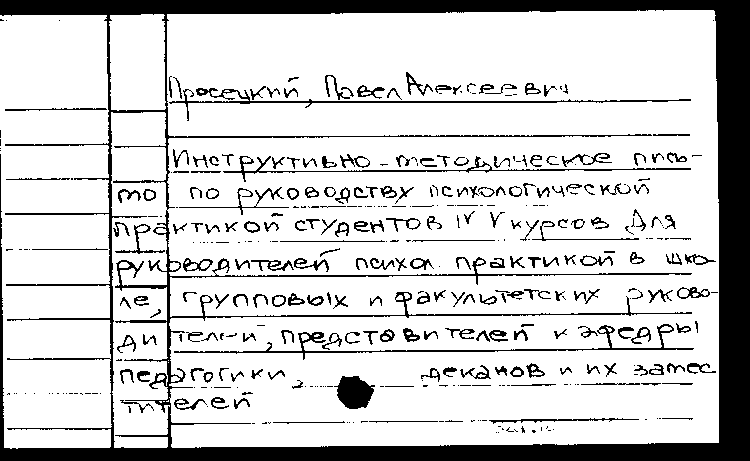 Просецкий, Павел Алексеевич
Инструктивно-методическое пись-
мо по руководству психологической
практикой студентов IV V курсов Для
руководителей психол. практикой в шко-
ле, групповых и факультетских руково-
дителей, представителей кафедры
педагогики, деканов и их замес
тителей